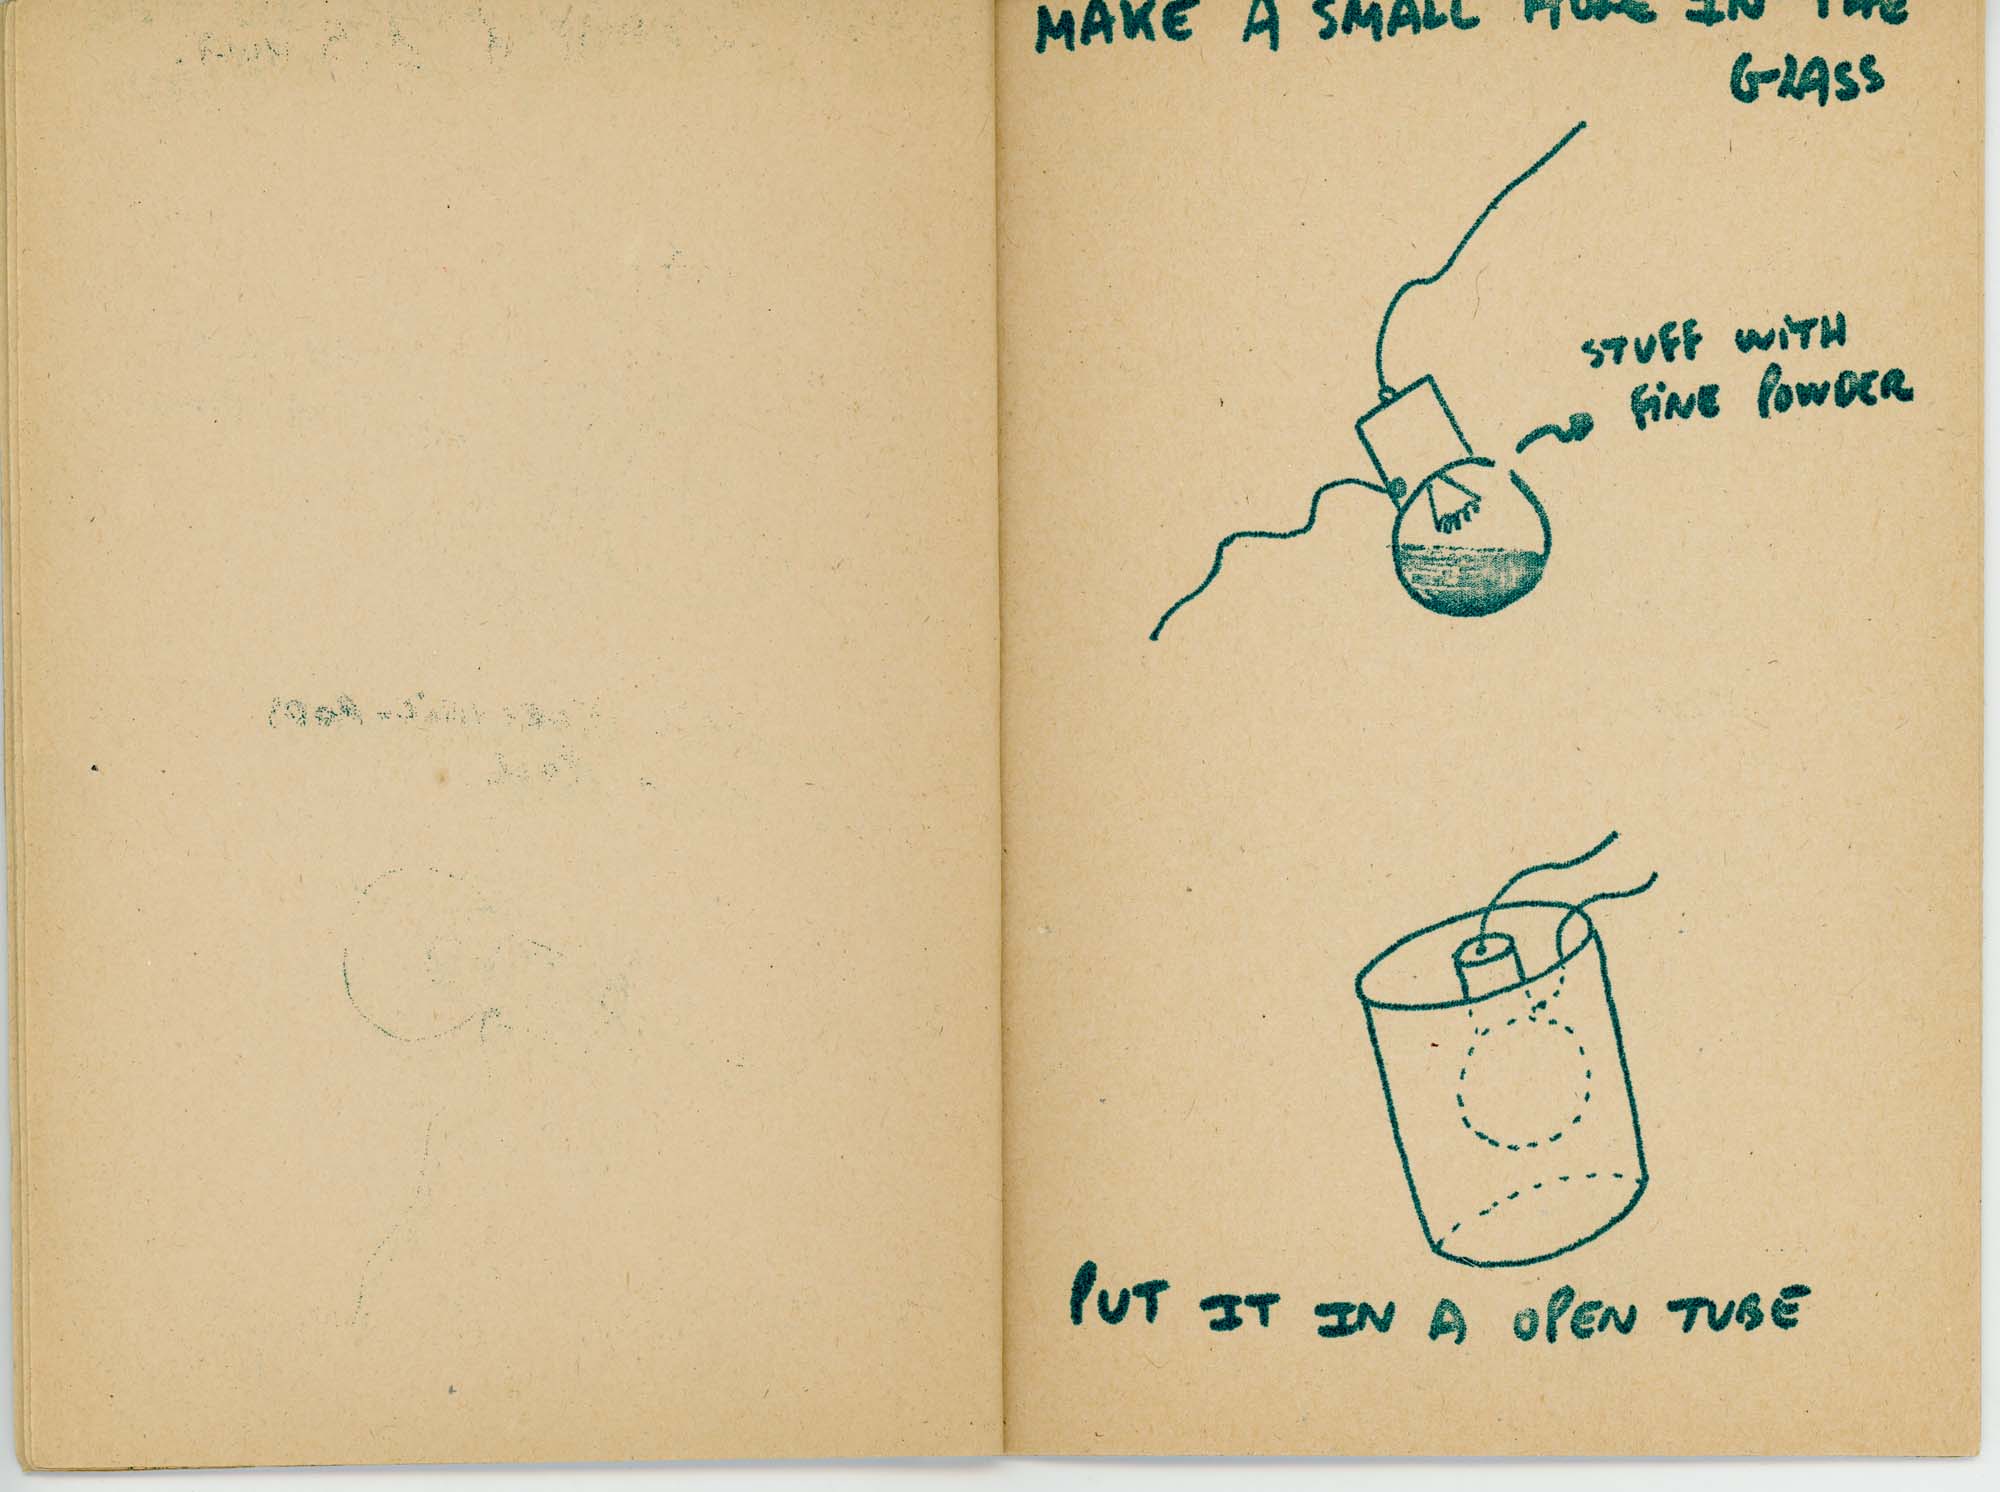 MAKE A SMALL HOLE IN THE
GLASS
STUFF WITH
FINE POWDER
PUT IT IN A OPEN TUBE